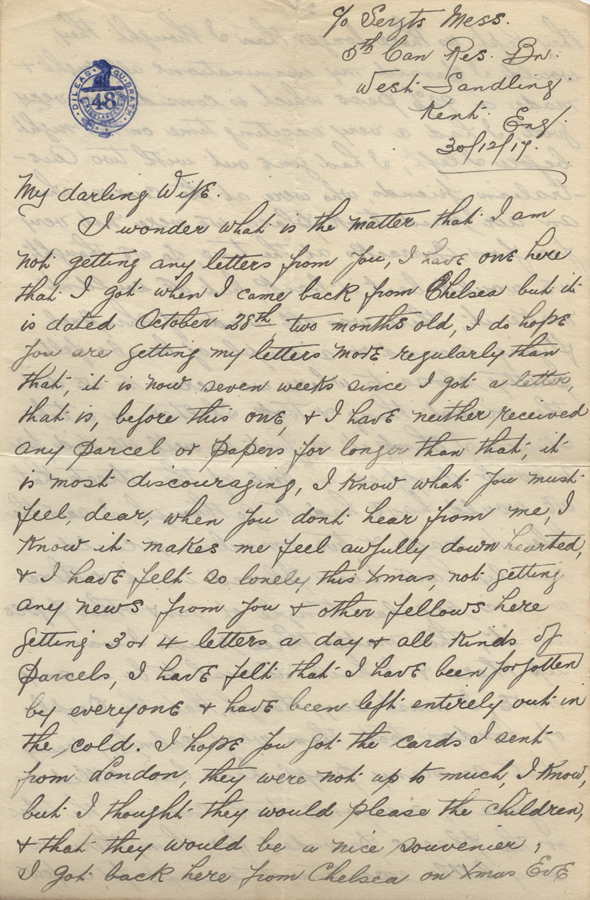 c/o Sergts Mess.
5th Can Res. Bn.
West Sandling
Kent Eng.
30/12/17.
DILEAS GU BRATH
48
HIGHLANDERS
My darling Wife.
I wonder what is the matter that I am
not getting any letters from you, I have one here
that I got when I came back from Chelsea but it
is dated October 28th, two months old, I do hope
you are getting my letters more regularly than
that, it is now seven weeks since I got a letter,
that is, before this one, & I have neither received
any parcel or papers for longer than that, it
is most discouraging, I know what you must
feel, dear, when you dont hear from me, I
know it makes me feel awfully down hearted,
& I have felt so lonely this Xmas, not getting
any news from you & other fellows here
getting 3 or 4 letters a day & all kinds of
parcels, I have felt that I have been forgotten
by everyone & have been left entirely out in
the cold. I hope you got the cards I sent
from London, they were not up to much, I know,
but I thought they would please the children,
& that they would be a nice souvenier,
I got back here from Chelsea on Xmas Eve